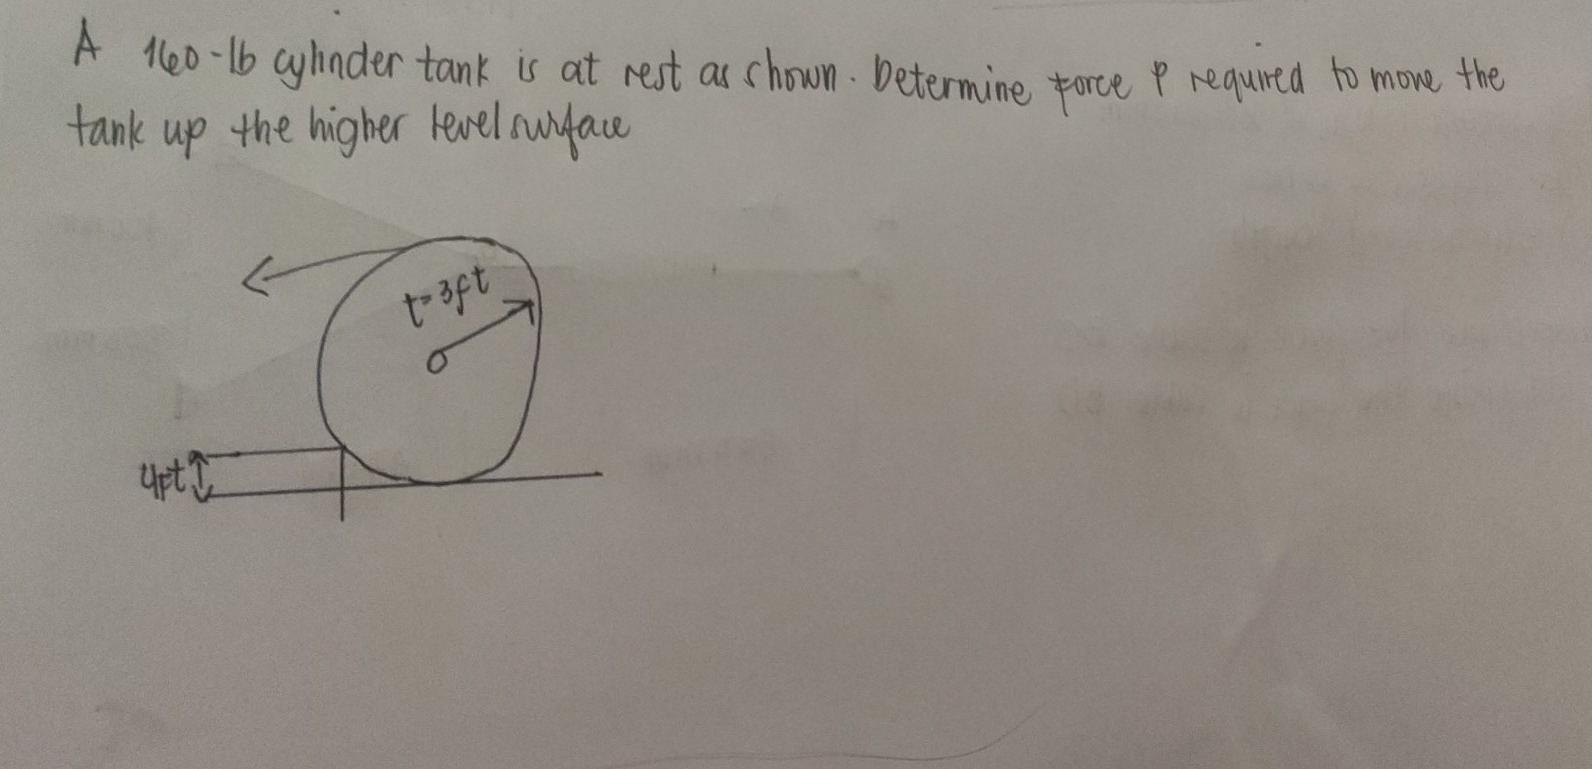 A 160-lb cylinder tank is at rest as shown. Determine force P required to move the
tank up the higher level surface
t=3ft
4ft